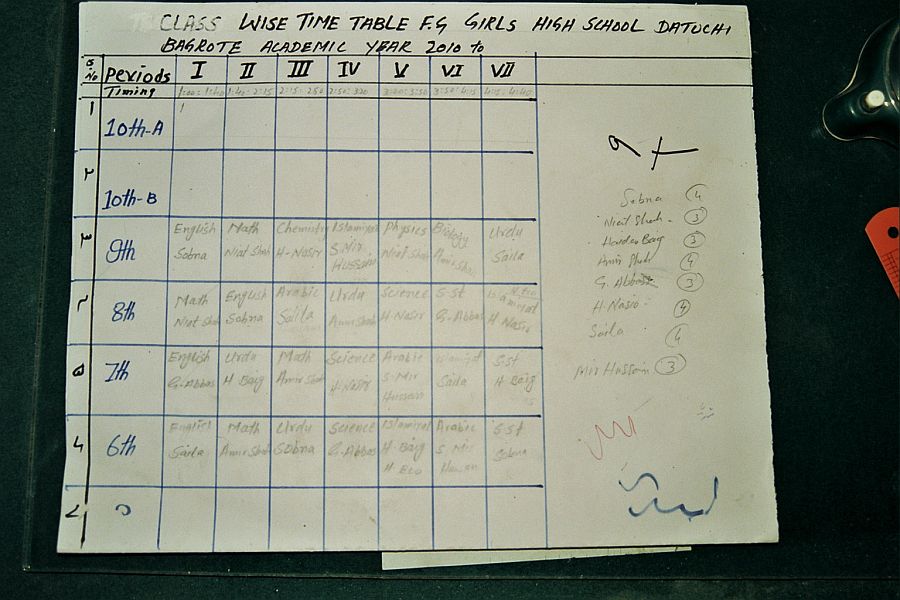 CLASS WISE TIME TABLE F.G GIRLS HIGH SCHOOL DATUCHI
BAGROTE ACADEMIC YEAR 2010 to
S.No Periods I II III IV V VI VII
Timing 1:00:1:40 1:40:2:15 2:15:250 2:50:320 3:20:3:50 3:50:4:15 4:15:4:40
1 10th-A
10th-B
9th English Math Chemistry Islamiyat Physics Biology Urdu
Sobna Niat Shah H-Nasir S.Mir Hussain Niat Shah Amir Shah Saila
8th Math English Arabic Urdu Science S.St
Niat Shah Sobna Saila Amir Shah H Nasir G.Abbas H Nasir
7th English Urdu Math Science Arabic Islamiyat S.St
G.Abbas H Baig Amir Shah H.Nasir S.Mir Hussain Saila H Baig
6th English Math Urdu Science Islamiyat Arabic S.St
Saila Amir Shah Sobna G.Abbas H.Baig S.Mir Sobna
Sobna 4
Niat Shah - 3
Haider Baig 3
Amir Shah 4
G.Abbas 3
H.Nasir 4
Saila 4
Mir Hussain 3